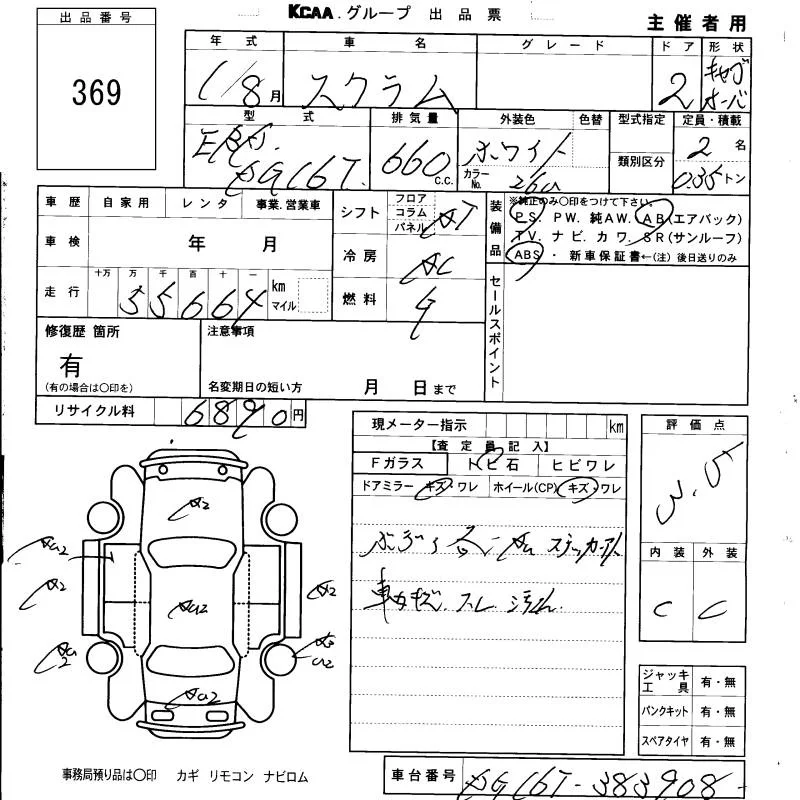 KCAA.グループ 出品票
主催者用
出品番号
369
年式 車名 グレード ドア 形状
1/8月 スクラム 2 キャブオーバ
型式 排気量 外装色 色替 型式指定 定員・積載
EBD. DG16T. 660 c.c. ホワイト 2名
カラーNo. 26U 類別区分 0.35トン
車歴 自家用 レンタ 事業.営業車
シフト フロア コラム パネル AT
装備品 ※純正のみ〇印をつけて下さい。
PS. PW. 純AW. AB(エアバック)
TV. ナビ. カワ. SR(サンルーフ)
ABS ・ 新車保証書←(注) 後日送りのみ
車検 年 月
冷房 AC
走行 十万 万 千 百 十 一 55664 km マイル
燃料 G
セールスポイント
修復歴 箇所
有
(有の場合は〇印を)
注意事項
名変期日の短い方 月 日まで
リサイクル料 6890円
現メーター指示 km
【査定員記入】
Fガラス トビ石 ヒビワレ
ドアミラー キズ・ワレ ホイール(CP) キズ・ワレ
ステッカーアト
車カキズ. スレ 汚れ.
評価点
3.5
内装 外装
C C
A2
AU2
A2
AU2
A2
AU2
AU2
ジャッキ工具 有・無
パンクキット 有・無
スペアタイヤ 有・無
事務局預り品は〇印 カギ リモコン ナビロム
車台番号 DG16T-383908-